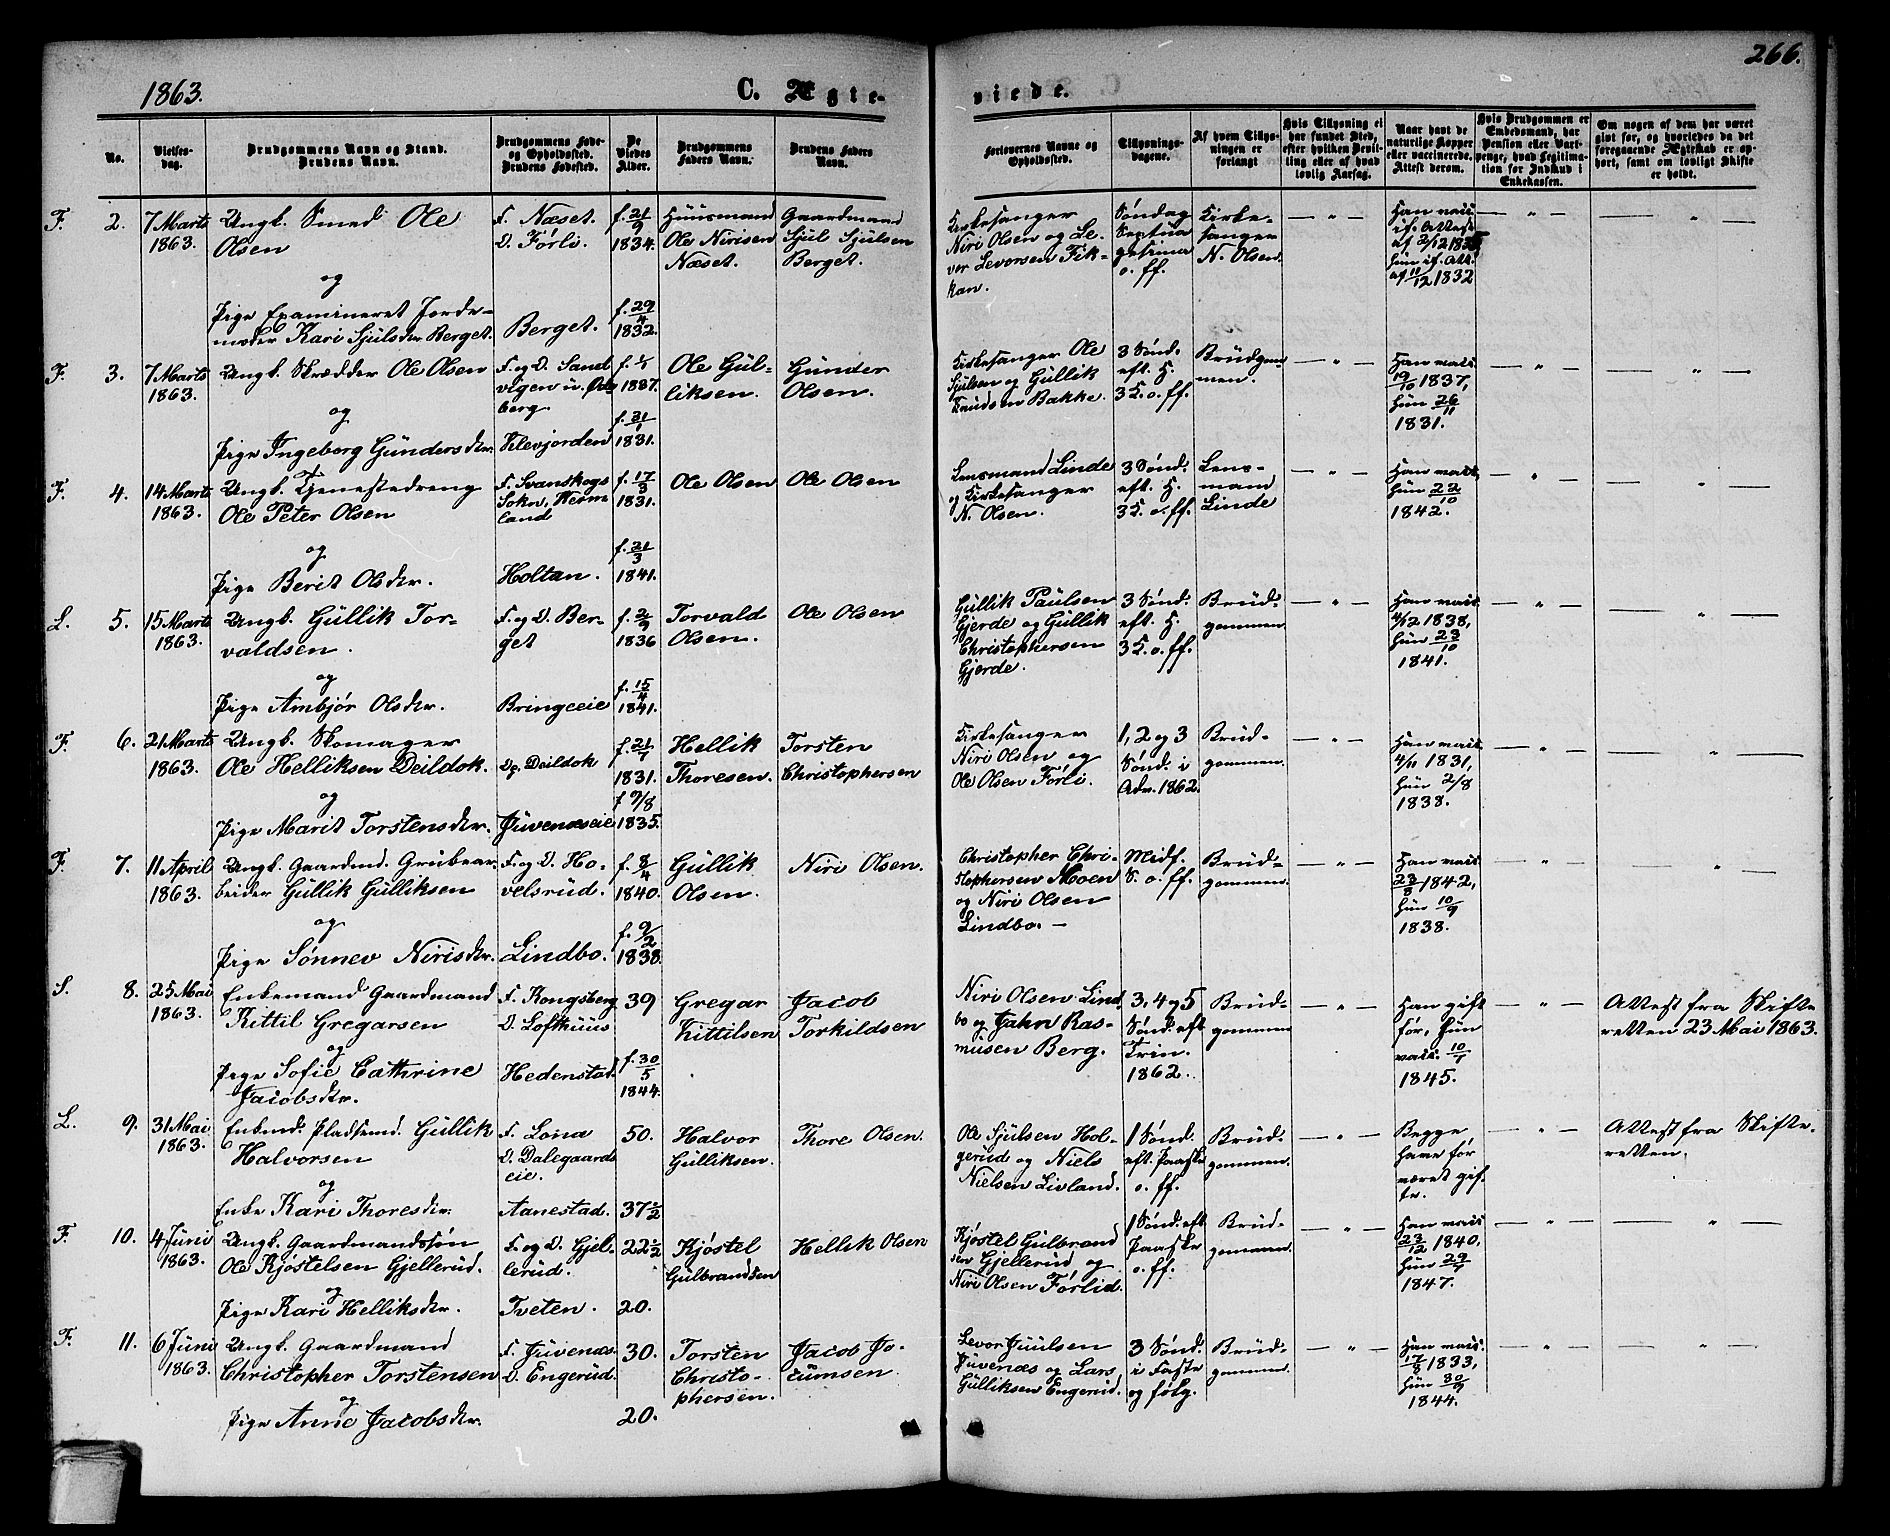 1863.
C. Ægte-
viede.
266.
No.
Vielses-
dag.
Brudgommens Navn og Stand.
Brudens Navn.
Brudgommens Føde-
og Opholdssted.
Brudens Fødested.
De
Viedes
Alder.
Brudgommens
Faders Navn.
Brudens Faders
Navn.
Forlovernes Navne og
Opholdssted.
Tillysnings-
dagene.
Af hvem Tillys-
ningen er
forlangt
Hvis Tillysning ei
har fundet Sted,
efter hvilken Bevil-
ling eller af hvad
lovlig Aarsag.
Naar havt de
naturlige Kopper
eller vaccinerede.
Attest derom.
Hvis Brudgommen er
Embedsmand, har
Pension eller Vart-
penge, hvad Legitima-
tion for Indskud i
Enkekassen.
Om nogen af dem har været
gift før, og hvorledes da det
foregaaende Ægteskab er op-
hørt, samt om lovligt Skifte
er holdt.
F. 2. 7 Marts
1863.
Ungk. Smed Ole
Olsen
og
Pige Examineret Jorde-
moder Kari Sjulsdtr Berget.
F. Næset.
O. Førli.
Berget.
f. 21/9
1834.
f. 29/4
1832.
Huusmand
Ole Nirisen
Næset.
Gaardmand
Sjul Sjulsen
Berget.
Kirkesanger
Niri Olsen og Le-
vor Levorsen Fik-
kan.
Søndag
Septua
gesima
o. ff.
Kirke-
sanger
N. Olsen.
Han vacc.
if. Attest
af 2/12 1835
Hun if. Att.
af 11/12 1832
F. 3. 7 Marts
1863.
Ungk. Skrædder Ole Olsen
og
Pige Ingeborg Gundersdtr.
F. og O. Sand
vigen u.
berg.
Klevjorden
1837.
f. 31/1
1831.
Ole Gul-
liksen.
Gunder
Olsen.
Kirkesanger Ole
Sjulsen og Gullik
Knudsen Bakke.
3 Sønd.
eft. H.
3 K. o. ff.
Brudgom
men.
Han vacc.
19/10 1837,
Hun 26/11
1831.
F. 4. 14 Marts
1863.
Ungk. Tjenestedreng
Ole Peter Olsen
og
Pige Berit Olsdtr.
F. Svanskogs
Sokn, Herm
land
Holtan.
f. 17/3
1831.
f. 21/3
1841.
Ole Olsen
Ole Olsen
Lensmand Linde
og Kirkesanger
N. Olsen.
3 Sønd.
eft. H.
3 K. o. ff.
Lens-
mand
Linde
Han vacc.
Hun 22/10
1842.
L. 5. 15 Marts
1863.
Ungk. Gullik Tor-
valdsen.
og
Pige Ambjør Olsdtr.
F. og O. Ber-
get
Bringeeie
f. 2/9
1836
f. 15/4
1841.
Torvald
Olsen.
Ole Olsen
Gullik Paulsen
Gjerde og Gullik
Christophersen
Gjerde.
3 Sønd.
eft. H.
3 K. o. ff.
Brud-
gommen
Han vacc.
4/12 1838,
Hun 23/10
1841.
F. 6. 21 Marts
1863.
Ungk. Skomager
Ole Helliksen Deildok.
og
Pige Marit Torstensdtr.
Deildok
Juvenæseie
f. 21/7
1831.
f 9/8
1835.
Hellik
Thoresen.
Torsten
Christophersen
Kirkesanger
Niri Olsen og
Ole Olsen Førli.
1, 2 og 3
Sønd. i
Adv. 1862.
Brud-
gommen.
Han vacc.
4/11 1831,
Hun 2/8
1838.
F. 7. 11 April
1863.
Ungk. Gaardmd. Grubear-
beider Gullik Gulliksen
og
Pige Sønnev Nirisdtr.
F. og O. Ho-
velsrud.
Lindbo.
f. 8/4
1840.
f. 9/2
1838.
Gullik
Olsen.
Niri Olsen.
Christopher Chri-
stophersen Moen
og Niri Olsen
Lindbo. —
Midf.
S. o. ff.
Brud-
gommen.
Han vacc.
23/8 1842,
Hun 10/9
1838.
S. 8. 25 Mai
1863.
Enkemand Gaardmand
Kittil Gregarsen
og
Pige Sofie Cathrine
Jacobsdtr.
F. Kongsberg
O. Lofthuus
Hedenstad.
39
f. 30/5
1844.
Gregar
Kittilsen
Jacob
Torkildsen
Niri Olsen Lind
bo og Jahn Ras-
musen Berg.
3, 4 og 5
Sønd. eft
Trin.
1862.
Brud-
gommen
Han gift
før, Hun
vacc. 10/7
1845.
Attest fra Skifte
retten 23 Mai 1863.
L. 9. 31 Mai
1863.
Enkmd. Pladsemd. Gullik
Halvorsen
og
Enke Kari Thoresdtr.
F. Lona
O. Dalegaards
eie.
Aanestad.
50.
37 1/2
Halvor
Gulliksen.
Thore Olsen.
Ole Sjulsen Hol-
gerud og Niels
Nielsen Livland.
1 Sønd.
eft. Paaske
o. ff.
Brud-
gommen.
Begge
have før
været gif-
te.
Attest fra Skifte-
retten.
F. 10. 4 Juni
1863.
Ungk. Gaardmandssøn
Ole Kjøstelsen Gjellerud.
og
Pige Kari Helliksdtr.
F. og O. Gjel-
lerud.
Tveten.
22 1/2
20.
Kjøstel
Gulbrandsen
Hellik Olsen
Kjøstel Gulbrand
sen Gjellerud og
Niri Olsen Førlid.
1 Sønd. eft
Paaske
o. ff.
Brud-
gommen.
Han vacc.
23/12 1840,
Hun 29/7
1847.
F. 11. 6 Juni
1863.
Ungk. Gaardmand
Christopher Torstensen
og
Pige Anne Jacobsdtr.
F. Juvenæs.
O. Engerud.
30.
20.
Torsten
Christo-
phersen.
Jacob Jo-
cumsen.
Levor Juulsen
Juvenæs og Lars
Gulliksen Engerud.
3 Sønd.
i Faste
og følg.
Brud-
gommen.
Han vacc.
17/8 1833,
Hun 30/9
1844.